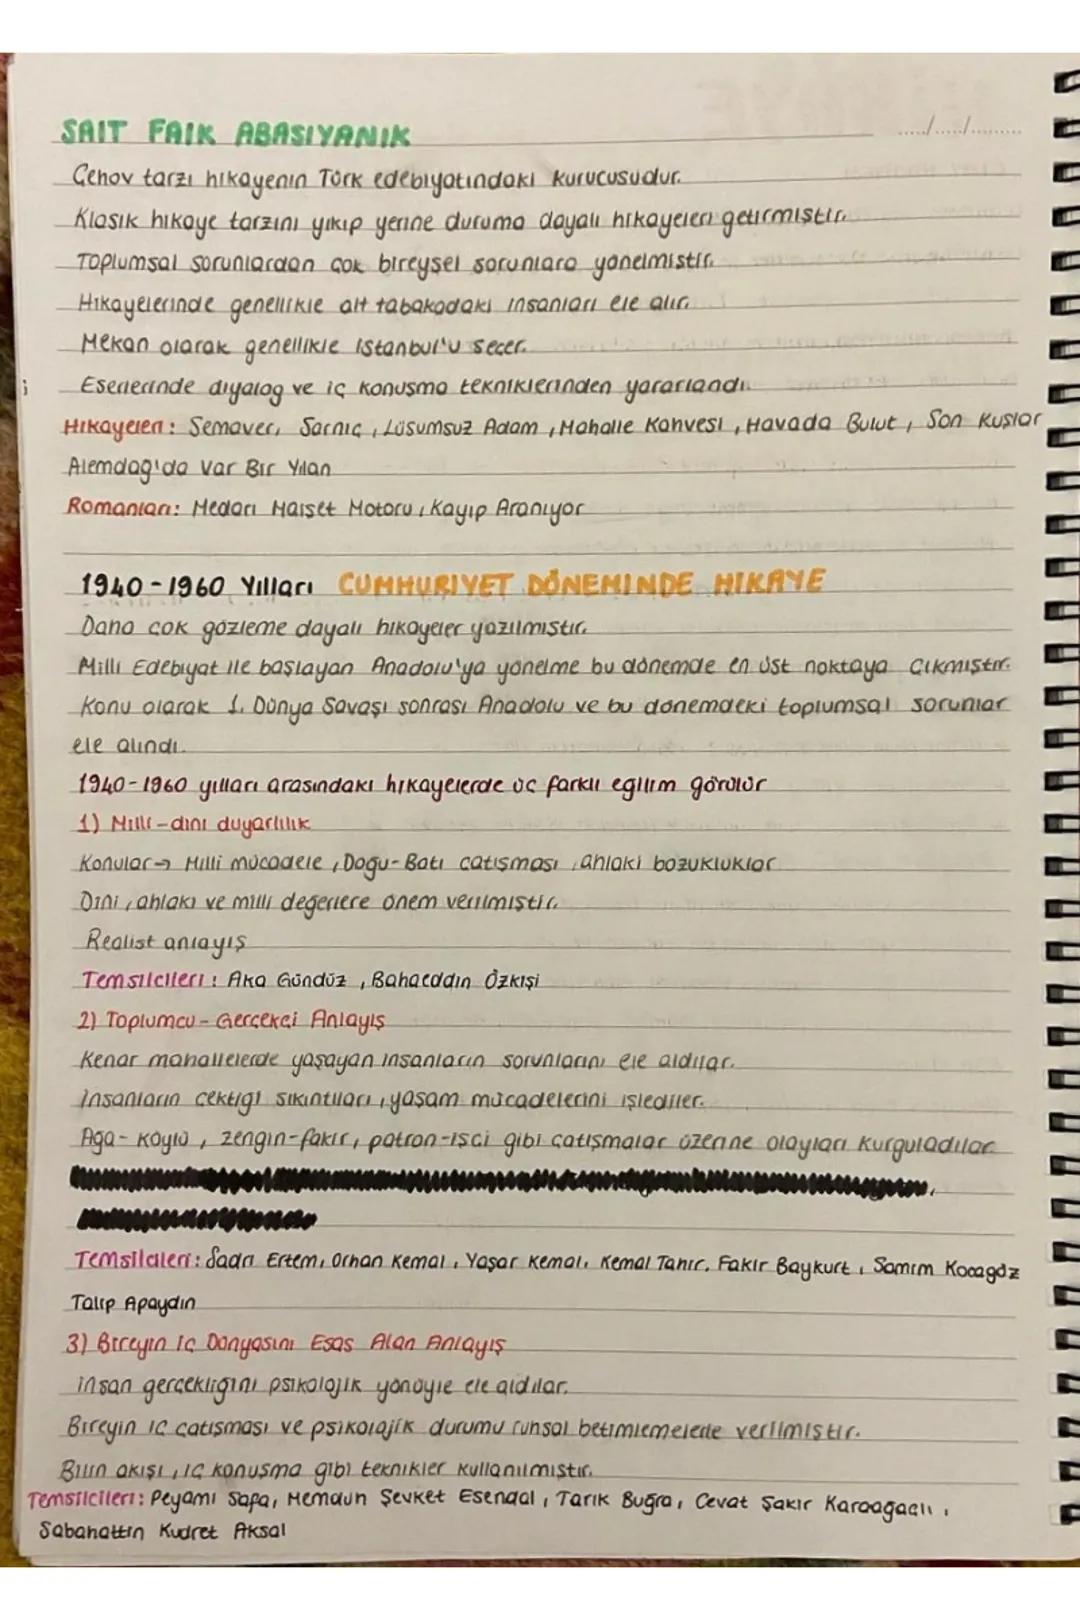 SAIT FAIK ABASIYANIK
...../...../..........
Çehov tarzı hikayenin Türk edebiyatındaki kurucusudur.
Klasik hikaye tarzını yıkıp yerine duruma dayalı hikayeleri getirmiştir.
Toplumsal sorunlardan çok bireysel sorunlara yönelmiştir.
Hikayelerinde genellikle alt tabakadaki insanları ele alır.
Mekan olarak genellikle İstanbul'u seçer.
Eserlerinde diyalog ve iç konuşma tekniklerinden yararlandı.
Hikayeleri: Semaver, Sarnıç, Lüsumsuz Adam, Mahalle Kahvesi, Havada Bulut, Son Kuşlar
Alemdağ'da Var Bir Yılan
Romanları: Medarı Maişet Motoru, Kayıp Aranıyor
1940-1960 Yılları CUMHURİYET DÖNEMİNDE HİKAYE
Daha çok gözleme dayalı hikayeler yazılmıştır.
Milli Edebiyat ile başlayan Anadolu'ya yönelme bu dönemde en üst noktaya çıkmıştır.
Konu olarak 1. Dünya Savaşı sonrası Anadolu ve bu dönemdeki toplumsal sorunlar
ele alındı.
1940-1960 yılları arasındaki hikayelerde üç farklı eğilim görülür
1) Milli-dini duyarlılık
Konular→ Milli mücadele, Doğu-Batı çatışması, ahlaki bozukluklar
Dini, ahlaki ve milli değerlere önem verilmiştir.
Realist anlayış
Temsilcileri: Aka Gündüz, Bahaeddin Özkişi
2) Toplumcu-Gerçekçi Anlayış
Kenar mahallelerde yaşayan insanların sorunlarını ele aldılar.
İnsanların çektiği sıkıntıları, yaşam mücadelerini işlediler.
Ağa-köylü, zengin-fakir, patron-işçi gibi çatışmalar üzerine olayları kurguladılar
Temsilcileri: Sadri Ertem, Orhan Kemal, Yaşar Kemal, Kemal Tahir, Fakir Baykurt, Samim Kocagöz
Talip Apaydın
3) Bireyin İç Dünyasını Esas Alan Anlayış
İnsan gerçekliğini psikolojik yönüyle ele aldılar.
Bireyin iç çatışması ve psikolojik durumu ruhsal betimlemelerle verilmiştir.
Bilin akışı, iç konuşma gibi teknikler kullanılmıştır.
Temsilcileri: Peyami Safa, Memduh Şevket Esendal, Tarık Buğra, Cevat Şakir Karaağaçlı,
Sabahattin Kudret Aksal